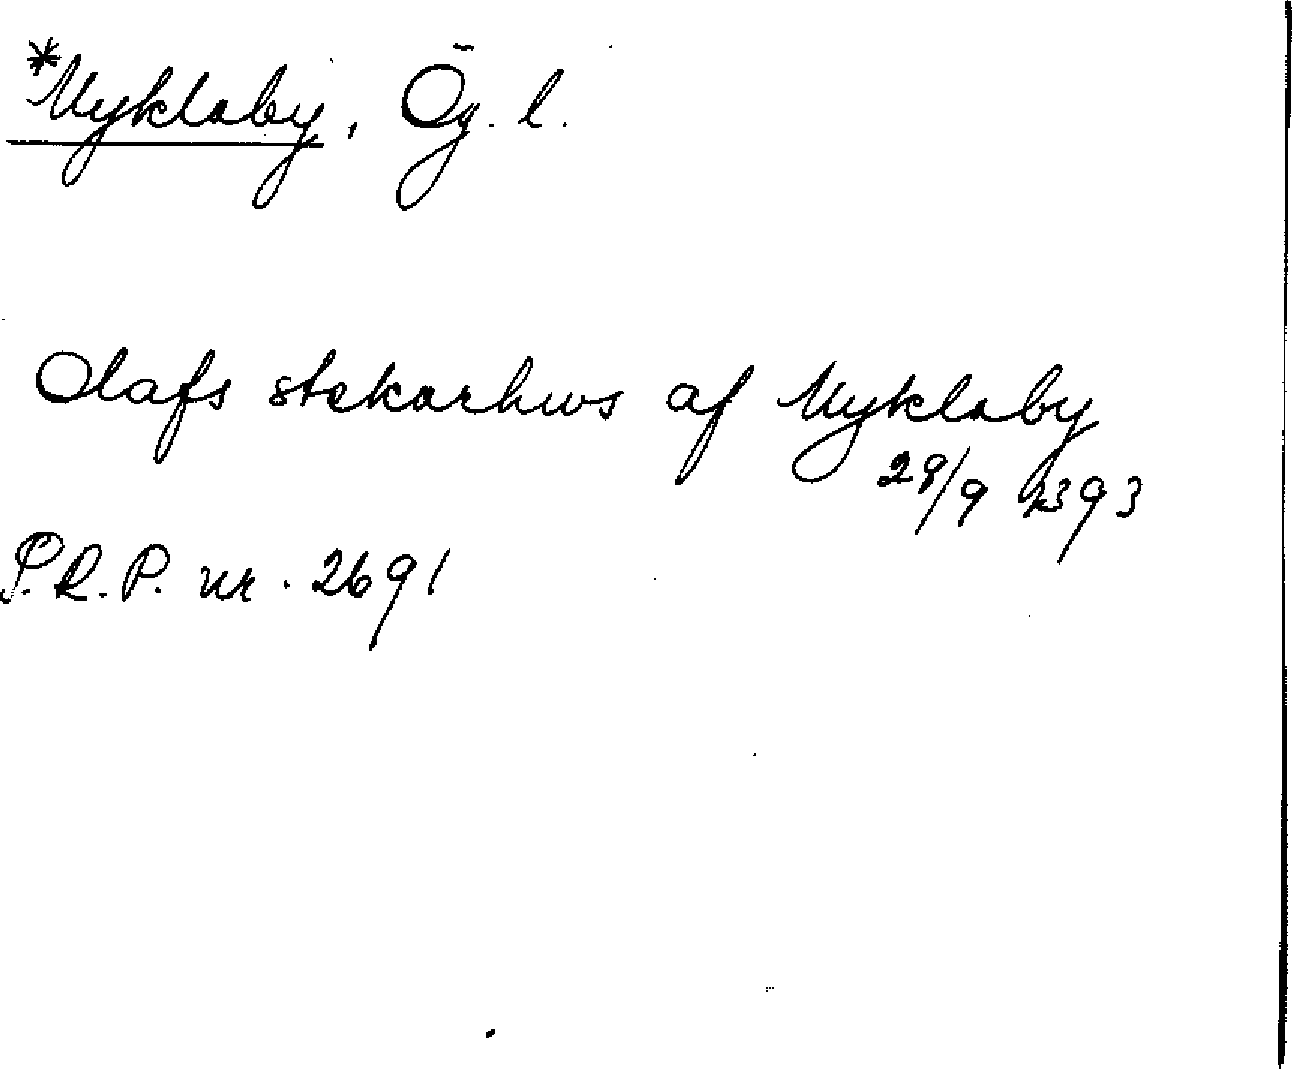 *Myklaby, Ög. l.
Olafs stekarhws af Myklaby
28/9 1393
P.R.P. nr. 2691